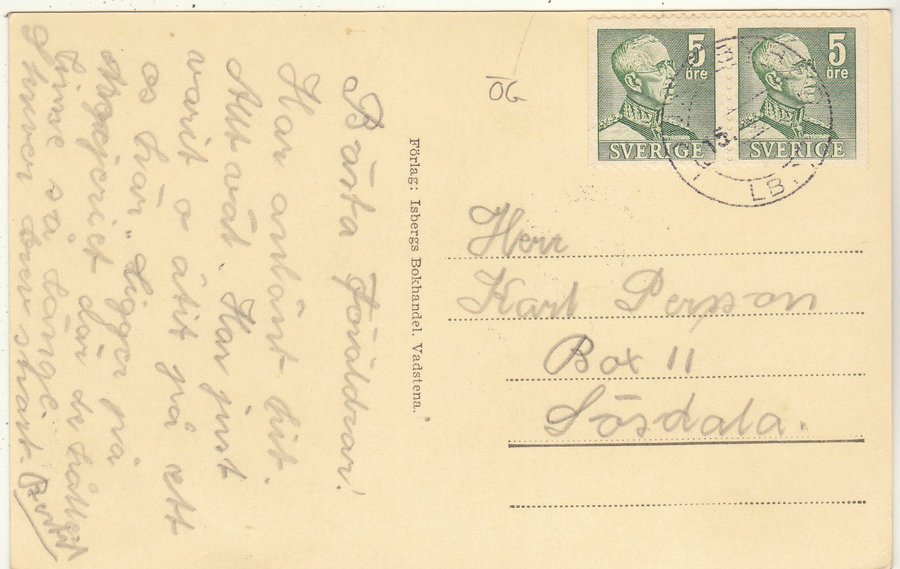 Bästa Föräldrar!
Har anlänt hit.
Allt väl. Har just
varit o ätit på ett
os här. Ligger på
Mejeriet där de hållit
timme så länge.
Skriver brev snart. Bertil
Förlag: Isbergs Bokhandel. Vadstena.
OG
5 öre SVERIGE
5 öre SVERIGE
LB
Herr
Karl Persson
Box 11
Sösdala.